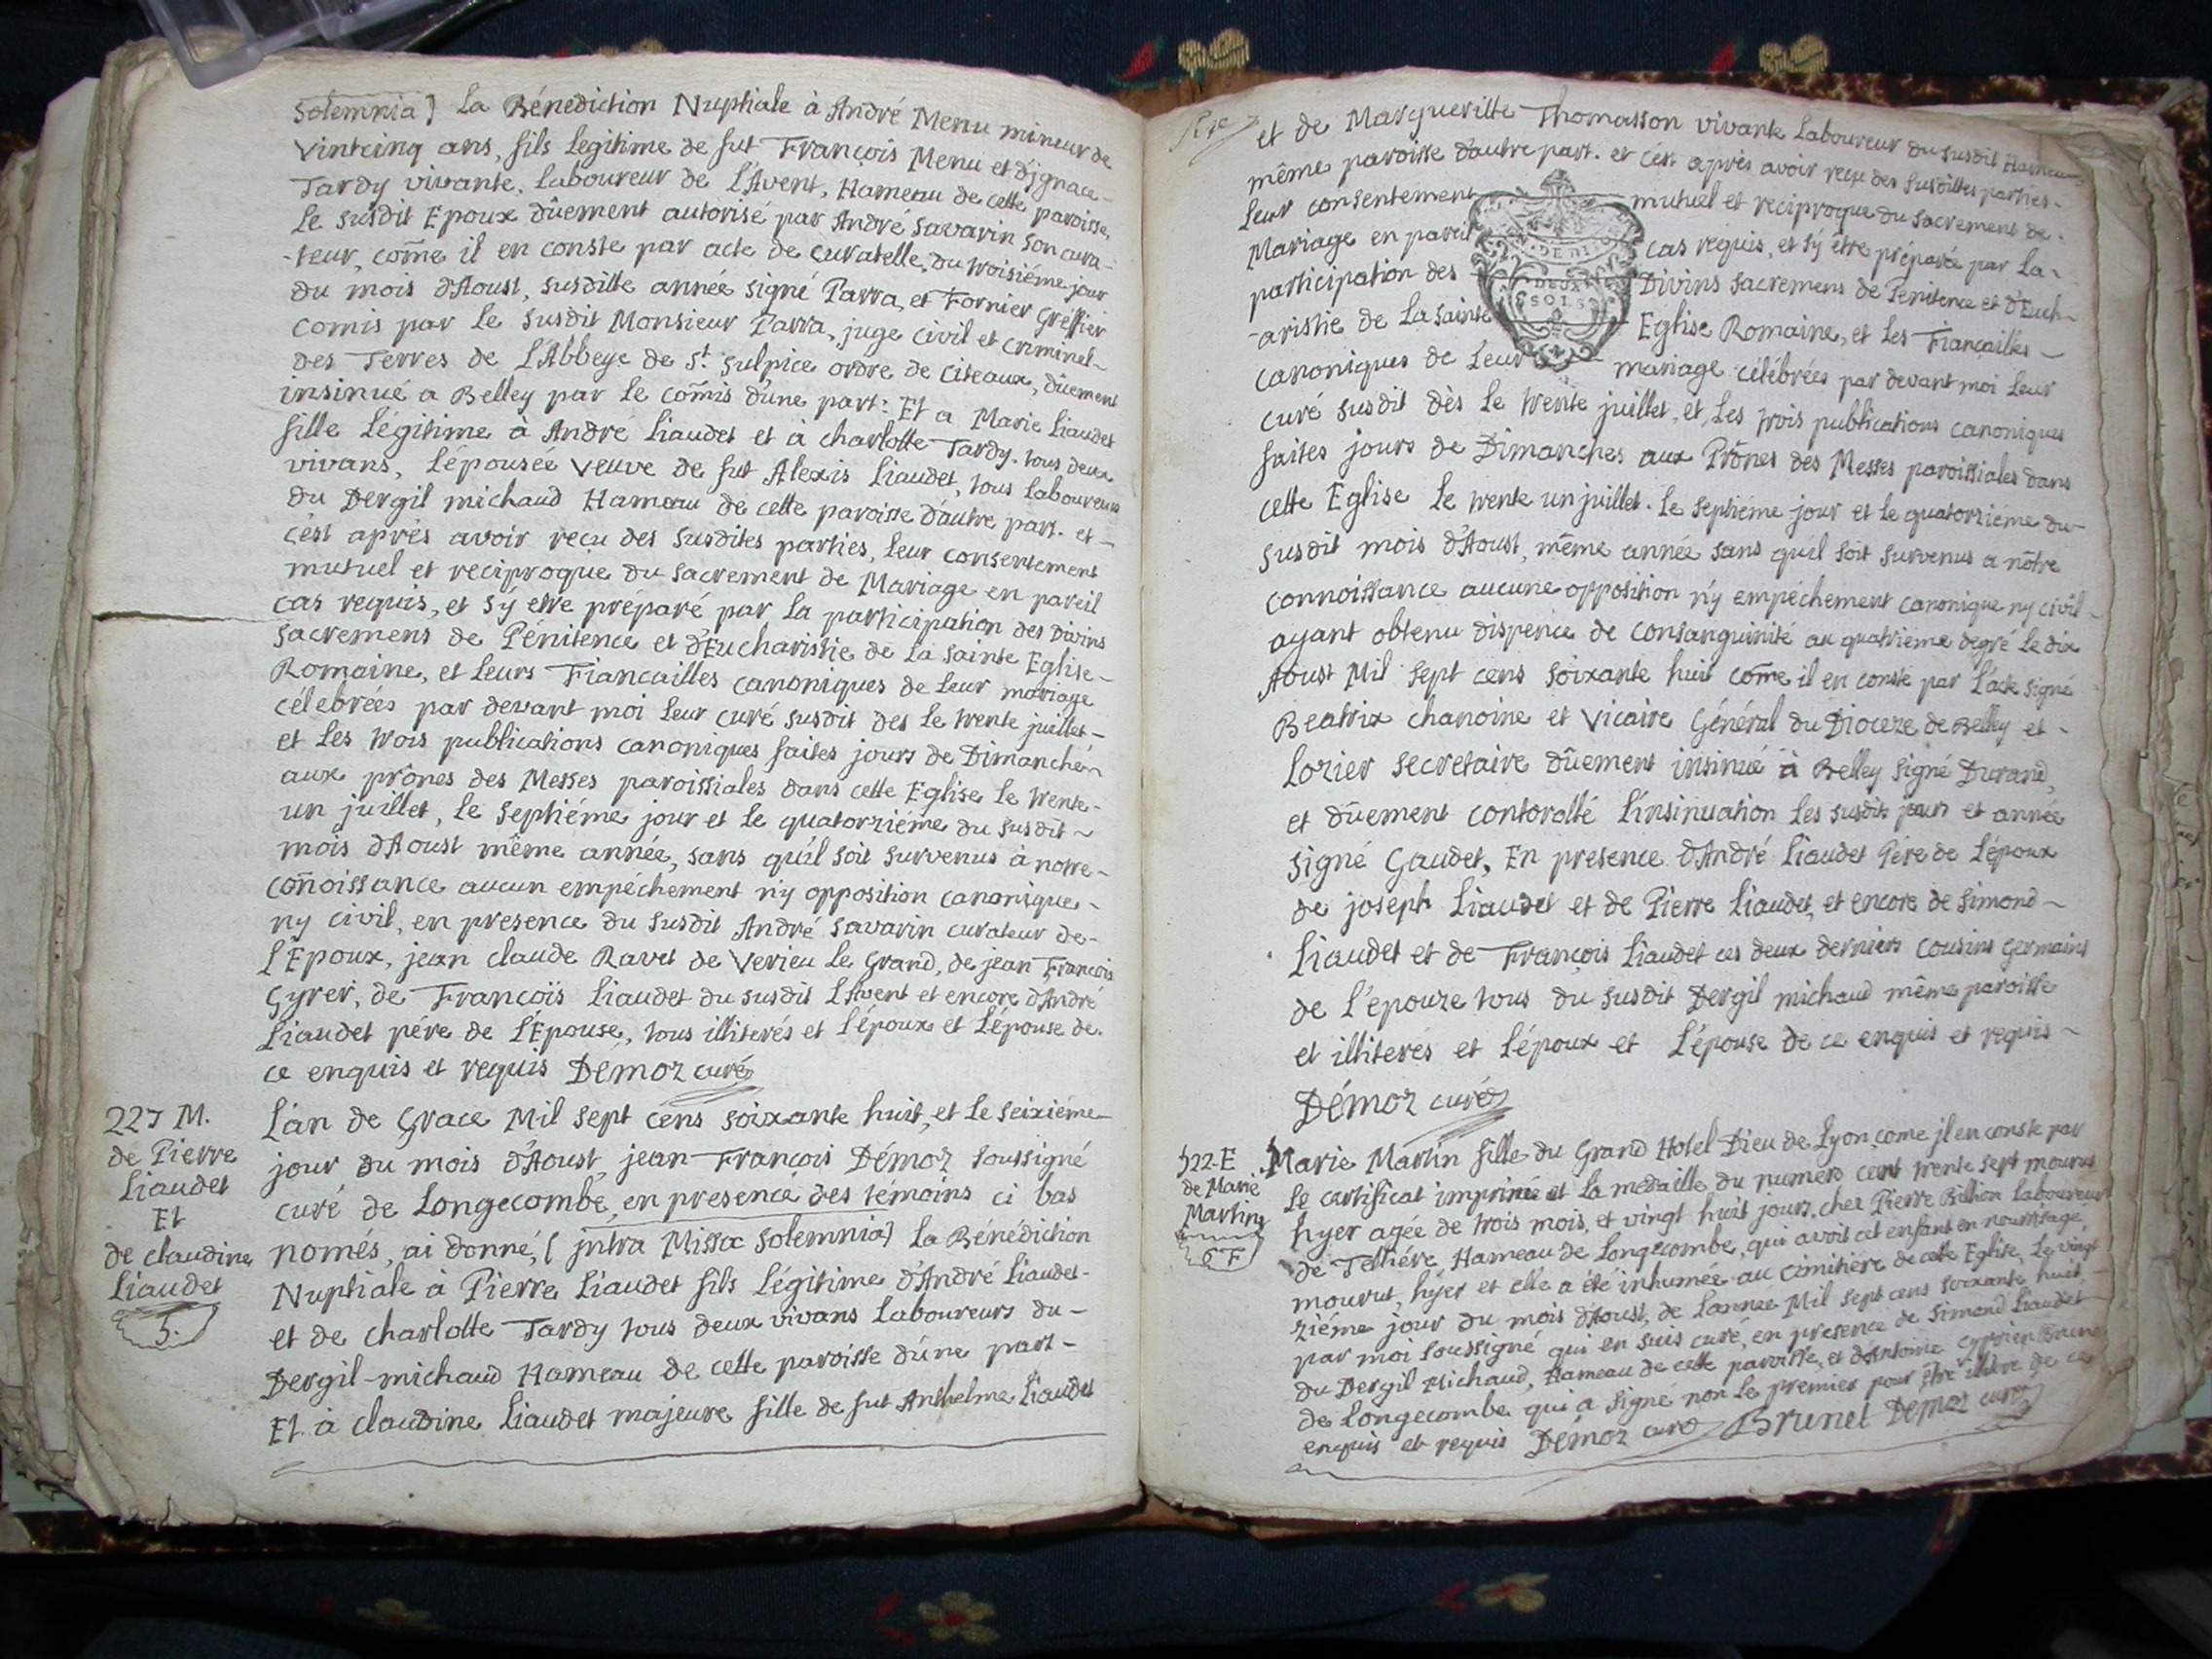 solemnia) La Bénediction Nuptiale à André Menu mineur de
vintcinq ans, fils legitime de fut François Menu et d'jgnace
Tardy vivante, laboureur de l'Avent, Hameau de cette paroisse,
le susdit Epoux dûement autorisé par André Savarin son cura-
-teur, come il en conste par acte de curatelle, du troisiéme jour
du mois d'Aoust, susditte année signé Parra, et Fornier Gréffier
comis par le susdit Monsieur Parra, juge civil et criminel-
des Terres de L'Abbeye de St. Sulpice ordre de Citeaux, dûement
insinué a Belley par le comis d'une part: Et a Marie Liaudet
fille Légitime à André Liaudet et à charlotte Tardy. tous deux
vivans, l'épousée veuve de fut Alexis Liaudet, tous laboureurs
du Dergil michaud Hameau de cette paroisse d'autre part. et-
c'est aprés avoir reçu des susdites parties, leur consentement
mutuel et reciproque du sacrement de Mariage en pareil
cas requis, et s'y etre préparé par la participation des Divins
sacremens de Pénitence et d'Eucharistie de la sainte Eglise-
Romaine, et leurs Fiancailles canoniques de leur mariage
célebrées par devant moi leur curé susdit des le trente juillet-
et les trois publications canoniques faites jours de Dimanche
aux prônes des Messes paroissiales dans cette Eglise le trente-
un juillet, le septiéme jour et le quatorziéme du susdit~
mois d'Aoust même année, sans qu'il soit survenus à notre-
connoissance aucun empéchement n'y opposition canonique-
ny civil, en presence du susdit André Savarin curateur de-
l'Epoux, jean claude Ravet de Verieu le Grand, de jean François
Gyrer, de François Liaudet du susdit l'Avent et encore d'André
Liaudet pére de l'Epouse, tous illiterés et l'époux et l'épouse de.
ce enquis et requis Démoz curé
227 M.
de Pierre
Liaudet
Et
de claudine
Liaudet
5.
L'an de Grace Mil sept cens soixante huit, et le seixiéme
jour du mois d'Aoust, jean-François Démoz soussigné
curé de Longecombe, en presence des témoins ci bas
només, ai donné, (jntra Missæ solemnia) La Bénédiction
Nuptiale à Pierre Liaudet fils légitime d'André Liaudet-
et de charlotte Tardy tous deux vivans laboureurs du-
Dergil-michaud Hameau de cette paroisse d'une part-
Et à claudine Liaudet majeure fille de fut Anthelme Liaudet
et de Margueritte Thomasson vivante laboureur du susdit Hameau
même paroisse d'autre part. et c'est aprés avoir reçu des susdittes parties-
leur consentement mutuel et reciproque du sacrement de.
Mariage en pareil cas requis, et s'y etre préparé par la-
participation des Divins sacremens de Penitence et d'Euch-
-aristie de la sainte Eglise Romaine, et les Fiançailles-
canoniques de leur mariage célébrées par devant moi leur
DEUX
SOLS
curé susdit dès le trente juillet, et les trois publications canoniques
faites jours de Dimanches aux Prônes des Messes paroissiales dans
cette Eglise le trente un juillet. le septiéme jour et le quatorziéme du-
susdit mois d'Aoust, même année sans qu'il soit survenus a nôtre
connoissance aucune opposition n'y empéchement canonique ny civil-
ayant obtenu dispence de consanguinité au quatrieme degré le dix
Aoust Mil sept cens soixante huit come il en conste par l'acte signé
Beatrix chanoine et Vicaire Général du Dioceze de Belley et-
Lozier secretaire dûement insinué à Belley signé Durand,
et dûement contorollé l'insinuation les susdits jours et année
signé Gaudet, En presence d'André Liaudet Pére de l'époux
de joseph Liaudet et de Pierre Liaudet, et encore de Simond~
Liaudet et de François Liaudet ces deux derniers cousins germains
de l'epouze tous du susdit Dergil michaud même paroisse
et illiterés et l'époux et l'épouse de ce enquis et requis~
Démoz curé
522-E
de Marie
Martin
67
Marie Martin fille du Grand Hotel Dieu de Lyon come jl en conste par
le certificat imprimé et la medaille du numero cent trente sept mourut
hyer agée de trois mois, et vingt huit jours, chez Pierre Billion laboureur
de Telliére Hameau de Longecombe, qui avoit cet enfant en nourrisage,
mourut, hyer et elle a été inhumée au cimitiére de cette Eglise, le vingt
ziéme jour du mois d'Aoust, de l'annee Mil sept cens soixante huit,
par moi soussigné qui en suis curé, en presence de Simond Liaudet
du Dergil Michaud, Hameau de cette paroisse, et d'Antoine cyprien Brunel
de Longecombe qui a signé non le premier pour être illitere de ce
enquis et requis Démoz curé Brunel Demoz curé